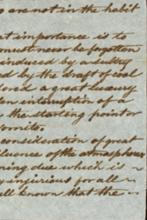 are not in the habit
at importance is to
must never be forgotten
induced by a sultry
ed by the draft of cool
dored a great luxury
on interruption of a
s the starting point or
omites.
consideration of great
fluence of the atmosphere
ning dew which is
injurious for all
ell known that the